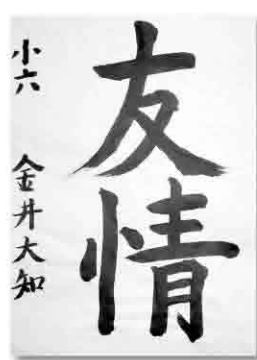 友情
小六 金井大知